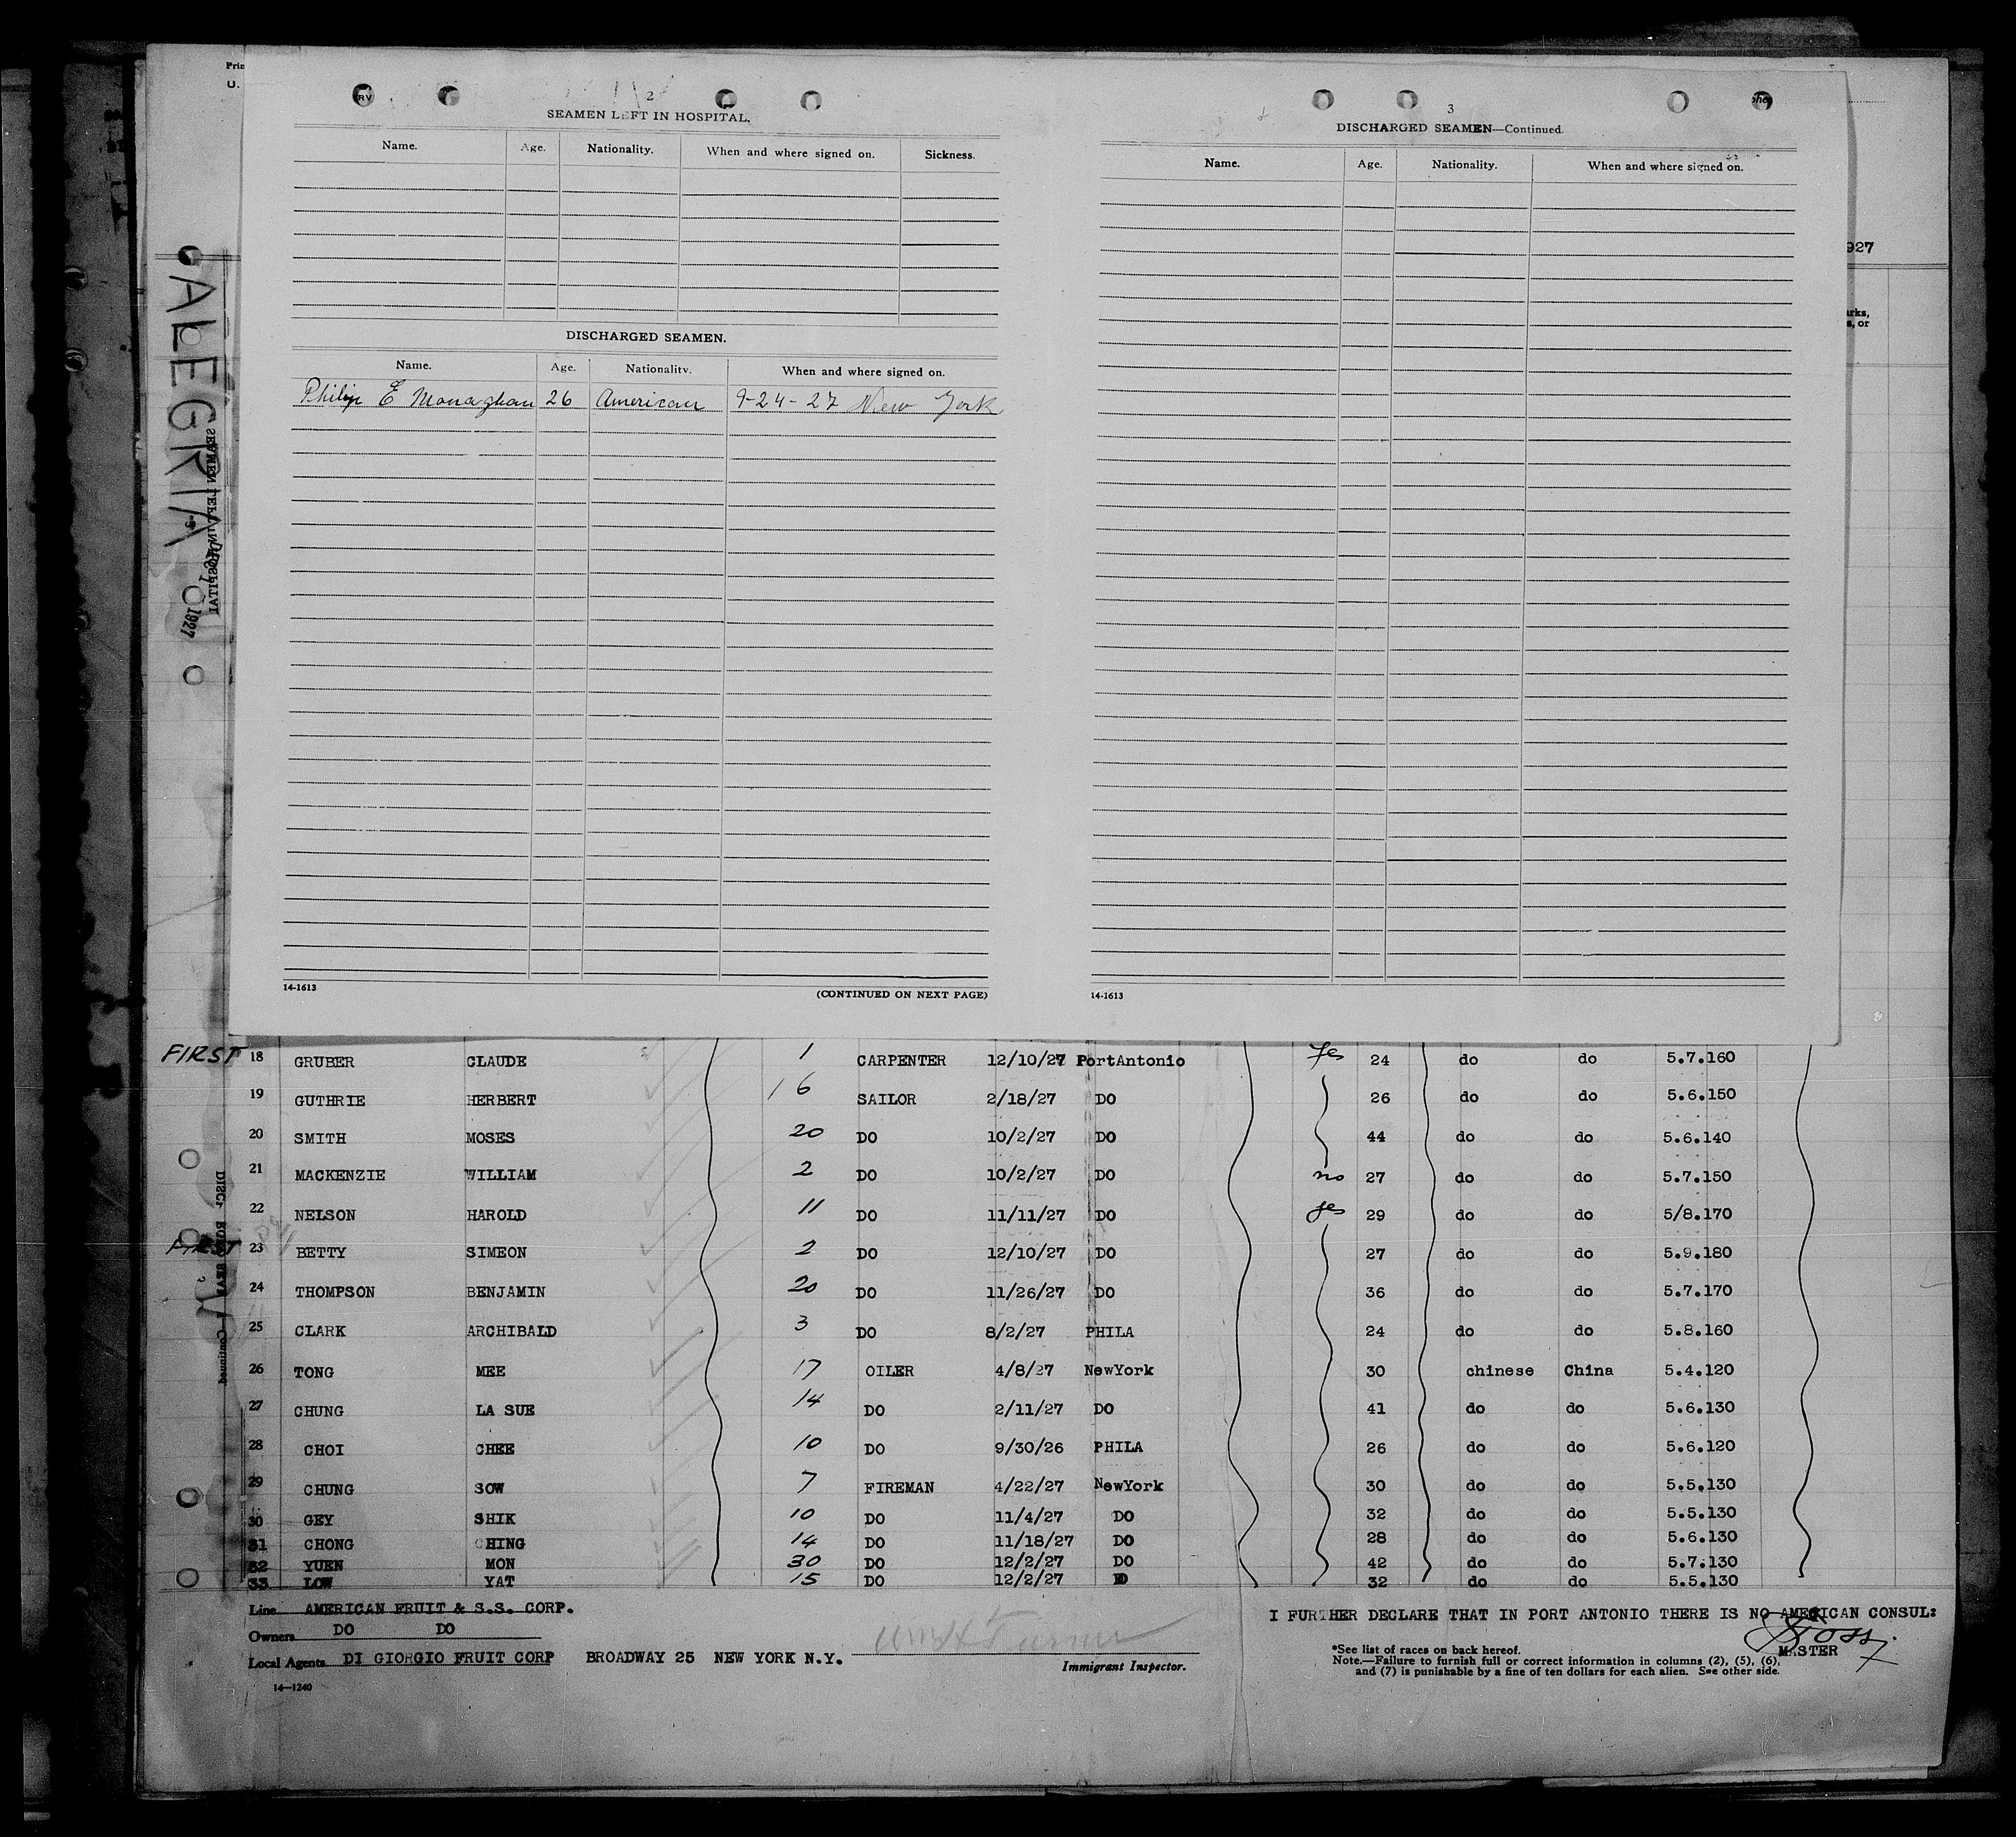 Prin
U.
RV
2
SEAMEN LEFT IN HOSPITAL.
Name. Age. Nationality. When and where signed on. Sickness.
DISCHARGED SEAMEN.
Name. Age. Nationality. When and where signed on.
Philip E Monaghan 26 American 9-24-27 New York
14-1613 (CONTINUED ON NEXT PAGE)
3
DISCHARGED SEAMEN—Continued.
Name. Age. Nationality. When and where signed on.
14-1613
927
arks,
s, or
ALEGRIA
1927
FIRST 18 GRUBER CLAUDE 1 CARPENTER 12/10/27 PortAntonio yes 24 do do 5.7.160
19 GUTHRIE HERBERT 16 SAILOR 2/18/27 DO 26 do do 5.6.150
20 SMITH MOSES 20 DO 10/2/27 DO 44 do do 5.6.140
21 MACKENZIE WILLIAM 2 DO 10/2/27 DO no 27 do do 5.7.150
22 NELSON HAROLD 11 DO 11/11/27 DO yes 29 do do 5/8.170
FIRST 23 BETTY SIMEON 2 DO 12/10/27 DO 27 do do 5.9.180
24 THOMPSON BENJAMIN 20 DO 11/26/27 DO 36 do do 5.7.170
25 CLARK ARCHIBALD 3 DO 8/2/27 PHILA 24 do do 5.8.160
26 TONG MEE 17 OILER 4/8/27 NewYork 30 chinese China 5.4.120
27 CHUNG LA SUE 14 DO 2/11/27 DO 41 do do 5.6.130
28 CHOI CHEE 10 DO 9/30/26 PHILA 26 do do 5.6.120
29 CHUNG SOW 7 FIREMAN 4/22/27 NewYork 30 do do 5.5.130
30 GEY SHIK 10 DO 11/4/27 DO 32 do do 5.5.130
31 CHONG CHING 14 DO 11/18/27 DO 28 do do 5.6.130
32 YUEN MON 30 DO 12/2/27 DO 42 do do 5.7.130
33 LOW YAT 15 DO 12/2/27 DO 32 do do 5.5.130
Line AMERICAN FRUIT & S.S. CORP.
Owners DO DO
Local Agents DI GIORGIO FRUIT CORP BROADWAY 25 NEW YORK N.Y.
Immigrant Inspector.
14—1240
I FURTHER DECLARE THAT IN PORT ANTONIO THERE IS NO AMERICAN CONSUL:
MASTER
*See list of races on back hereof.
Note.—Failure to furnish full or correct information in columns (2), (5), (6),
and (7) is punishable by a fine of ten dollars for each alien. See other side.